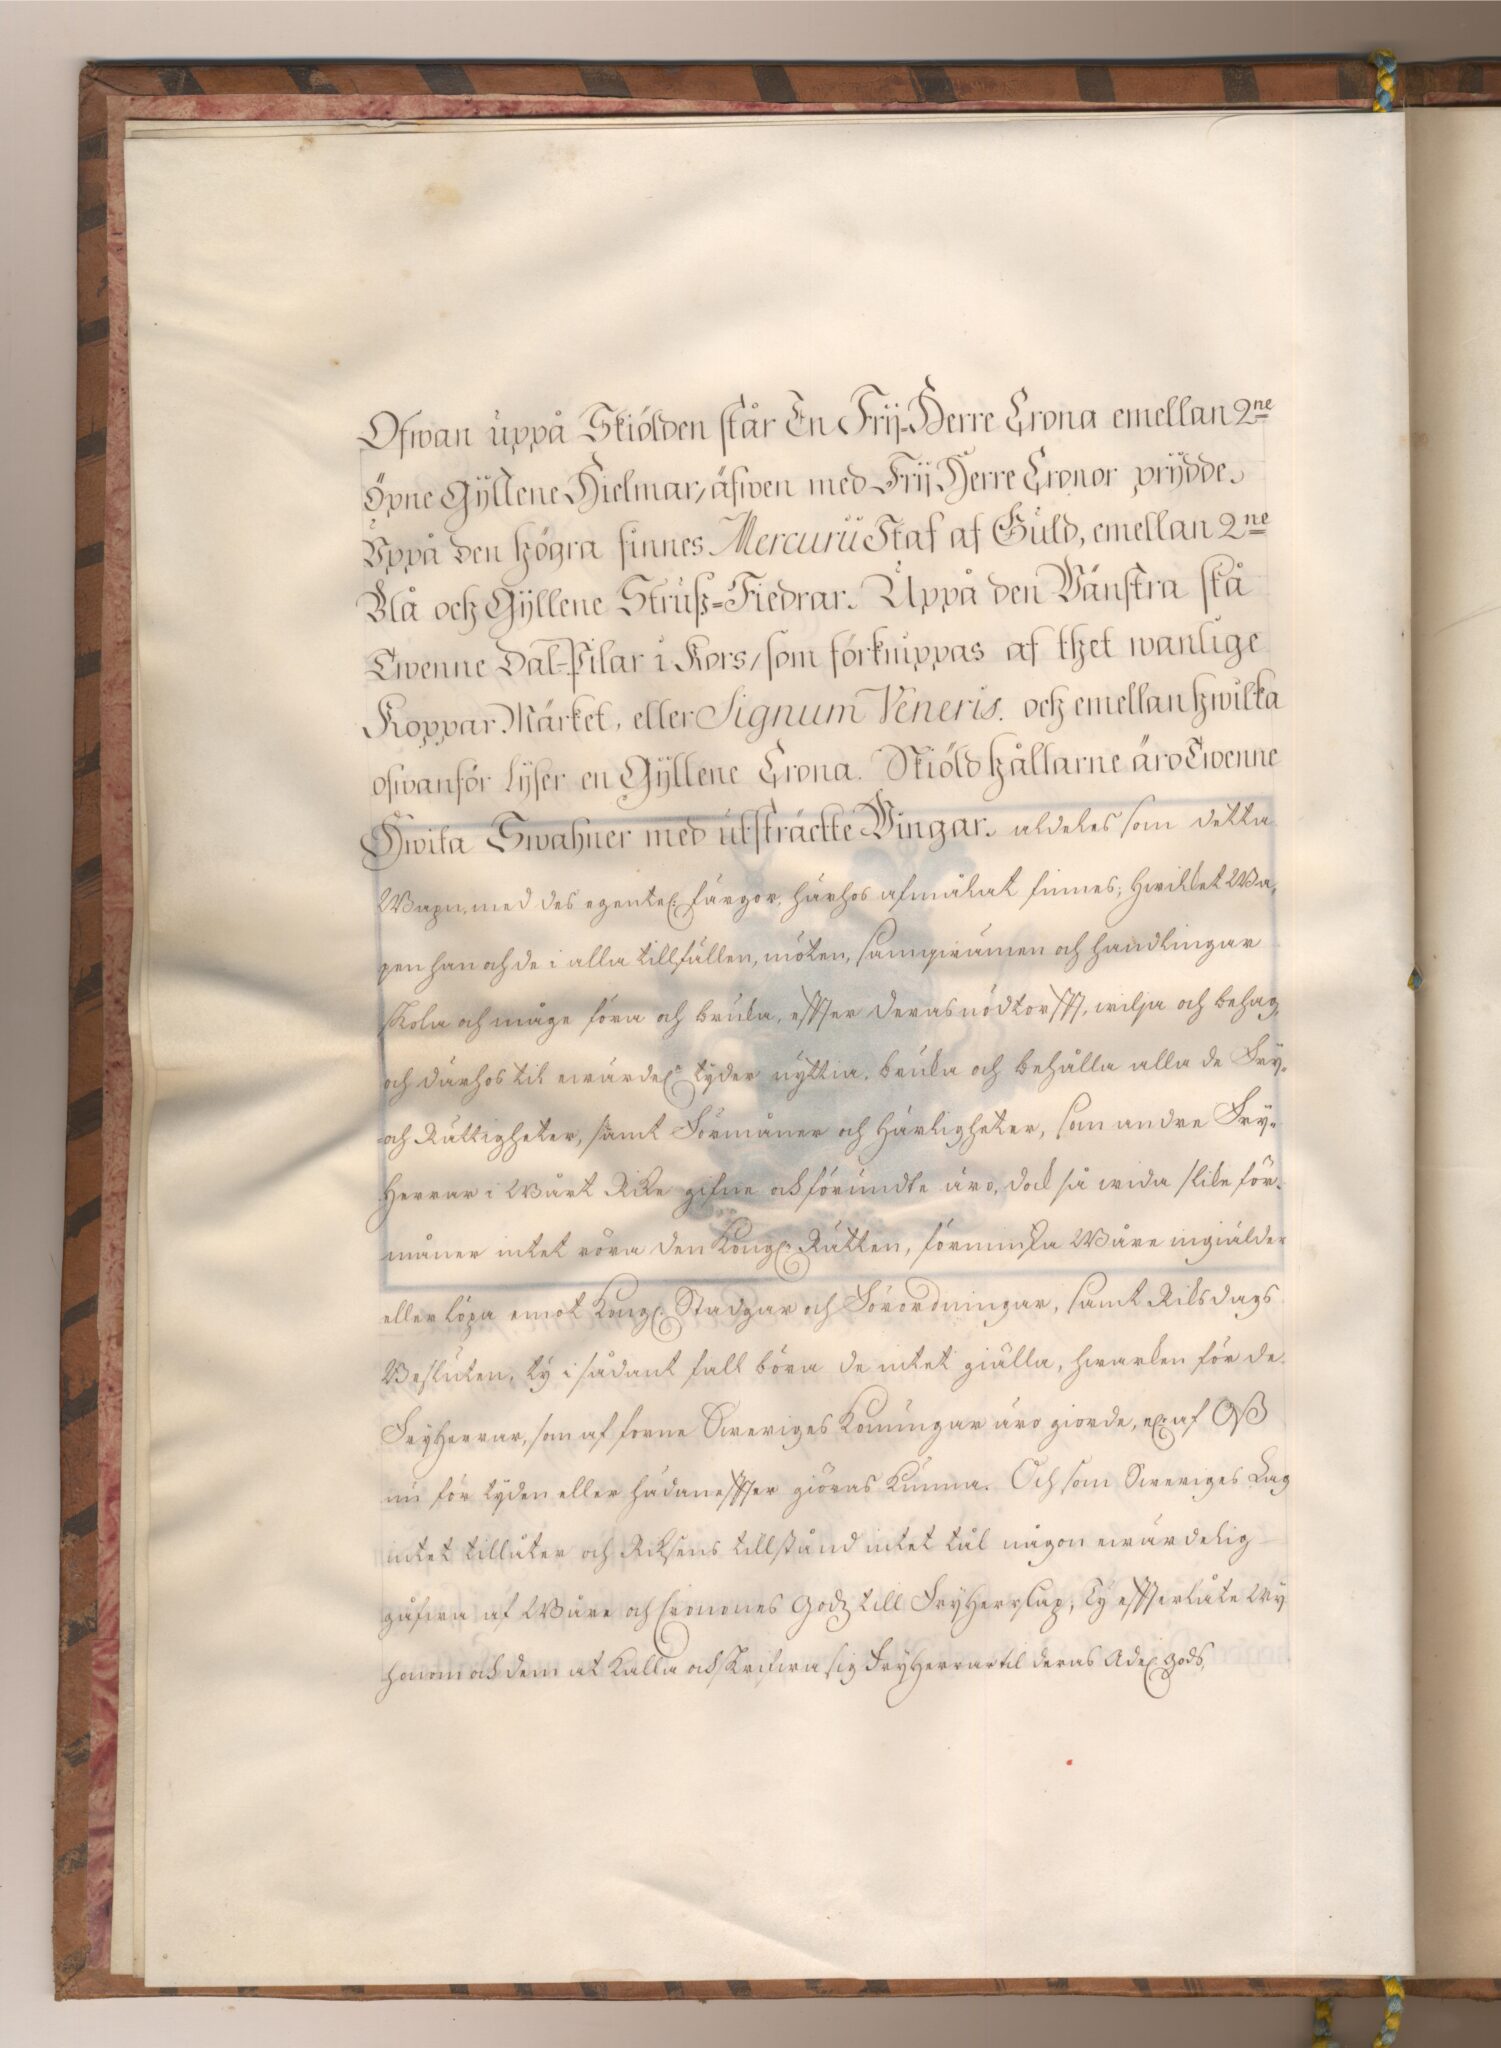 Ofwan uppå Skiölden står En Frij-Herre Crona emellan 2ne
öpne Gyllene Hielmar, äfwen med Frij Herre Cronor prydde.
Uppå den högra finnes Mercurii Staf af Guld, emellan 2ne
Blå och Gyllene Struß=Fiedrar. Uppå den Vänstra stå
Twenne Dal-Pilar i Kors, som förknippas af thet wanlige
Koppar Märket, eller Signum Veneris. och emellan hwilka
ofwanför lyser en Gyllene Crona. Skiöld hållarne äro Twenne
Hwita Swahner med utsträckte Vingar. aldeles som detta
Wapn, med des egentel: färgor, härhos afmålat finnes; Hwilket Wa-
pen han och de i alla tillfällen, möten, samqwämen och handlingar
skola och måge föra och bruka, effter deras nödtorfft, wilja och behag,
och därhos til ewärdel: tyder nyttia, bruka och behålla alla de Fry-
och Rättigheter, samt Förmåner och Härligheter, som andre Fry-
Herrar i Wårt Rike gifne och förundte äro, dock så wida slike för-
måner intet röra den Kongl: Rätten, förminska Wåre ingiälder
eller löpa emot Kongl: Stadgar och Förordningar, samt Riksdags
Besluten, ty i sådant fall böra de intet giälla, hwarken för de
FryHerrar, som af forne Sweriges Konungar äro giorde, el: af Oß
nu för tyden eller hädaneffter giöras kunna. Och som Sweriges Lag
intet tillåter och Riksens tillstånd intet tål någon ewärdelig
gåfwa af Wåre och Cronones Godz till FryHerrskap; Ty effterlåte Wy
honom och dem at kalla och skrifwa sig FryHerrar til deras Adel: Gods,